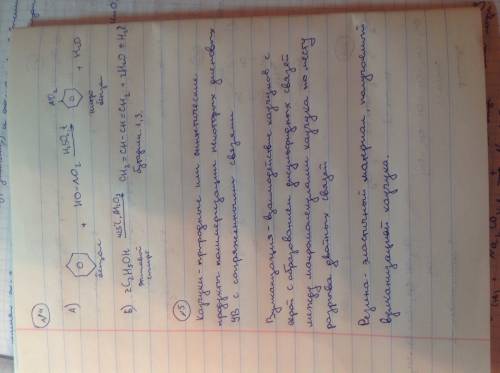 №4
А) + HO-NO2 H2SO4, t NO2 + H2O
бензол нитро
бензол
Б) 2C2H5OH 425°C, Al2O3 CH2=CH-CH=CH2 + 2H2O + H2↑
этиловый бутадиен 1,3.
спирт
№5
Каучуки - природные или синтетические
продукты полимеризации некоторых диеновых
УВ с сопряженными связями
Вулканизация - взаимодействие каучуков с
серой с образованием дисульфидных связей
между макромолекулами каучука по месту
разрыва двойных связей
Резина - эластичный материал, получаемый
вулканизацией каучука.